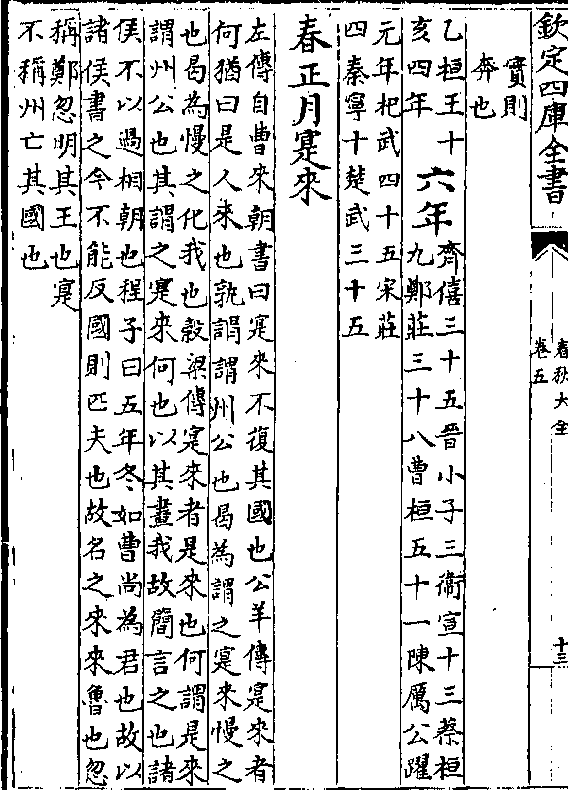 欽定四庫全書
春秋大全
卷五
十三
實則
奔也
乙桓王十
亥四年
六年
齊僖三十五晉小子三衞宣十三蔡桓
九鄭莊三十八曹桓五十一陳厲公躍
元年杞武四十五宋莊
四秦寧十楚武三十五
春正月寔來
左傳自曹來朝書曰寔來不復其國也公羊傳寔來者
何猶曰是人來也孰謂謂州公也曷為謂之寔來慢之
也曷為慢之化我也穀梁傳寔來者是來也何謂是來
謂州公也其謂之寔來何也以其畫我故簡言之也諸
侯不以過相朝也程子曰五年冬如曹尚為君也故以
諸侯書之今不能反國則匹夫也故名之來來魯也忽
稱鄭忽明其王也寔
不稱州亡其國也